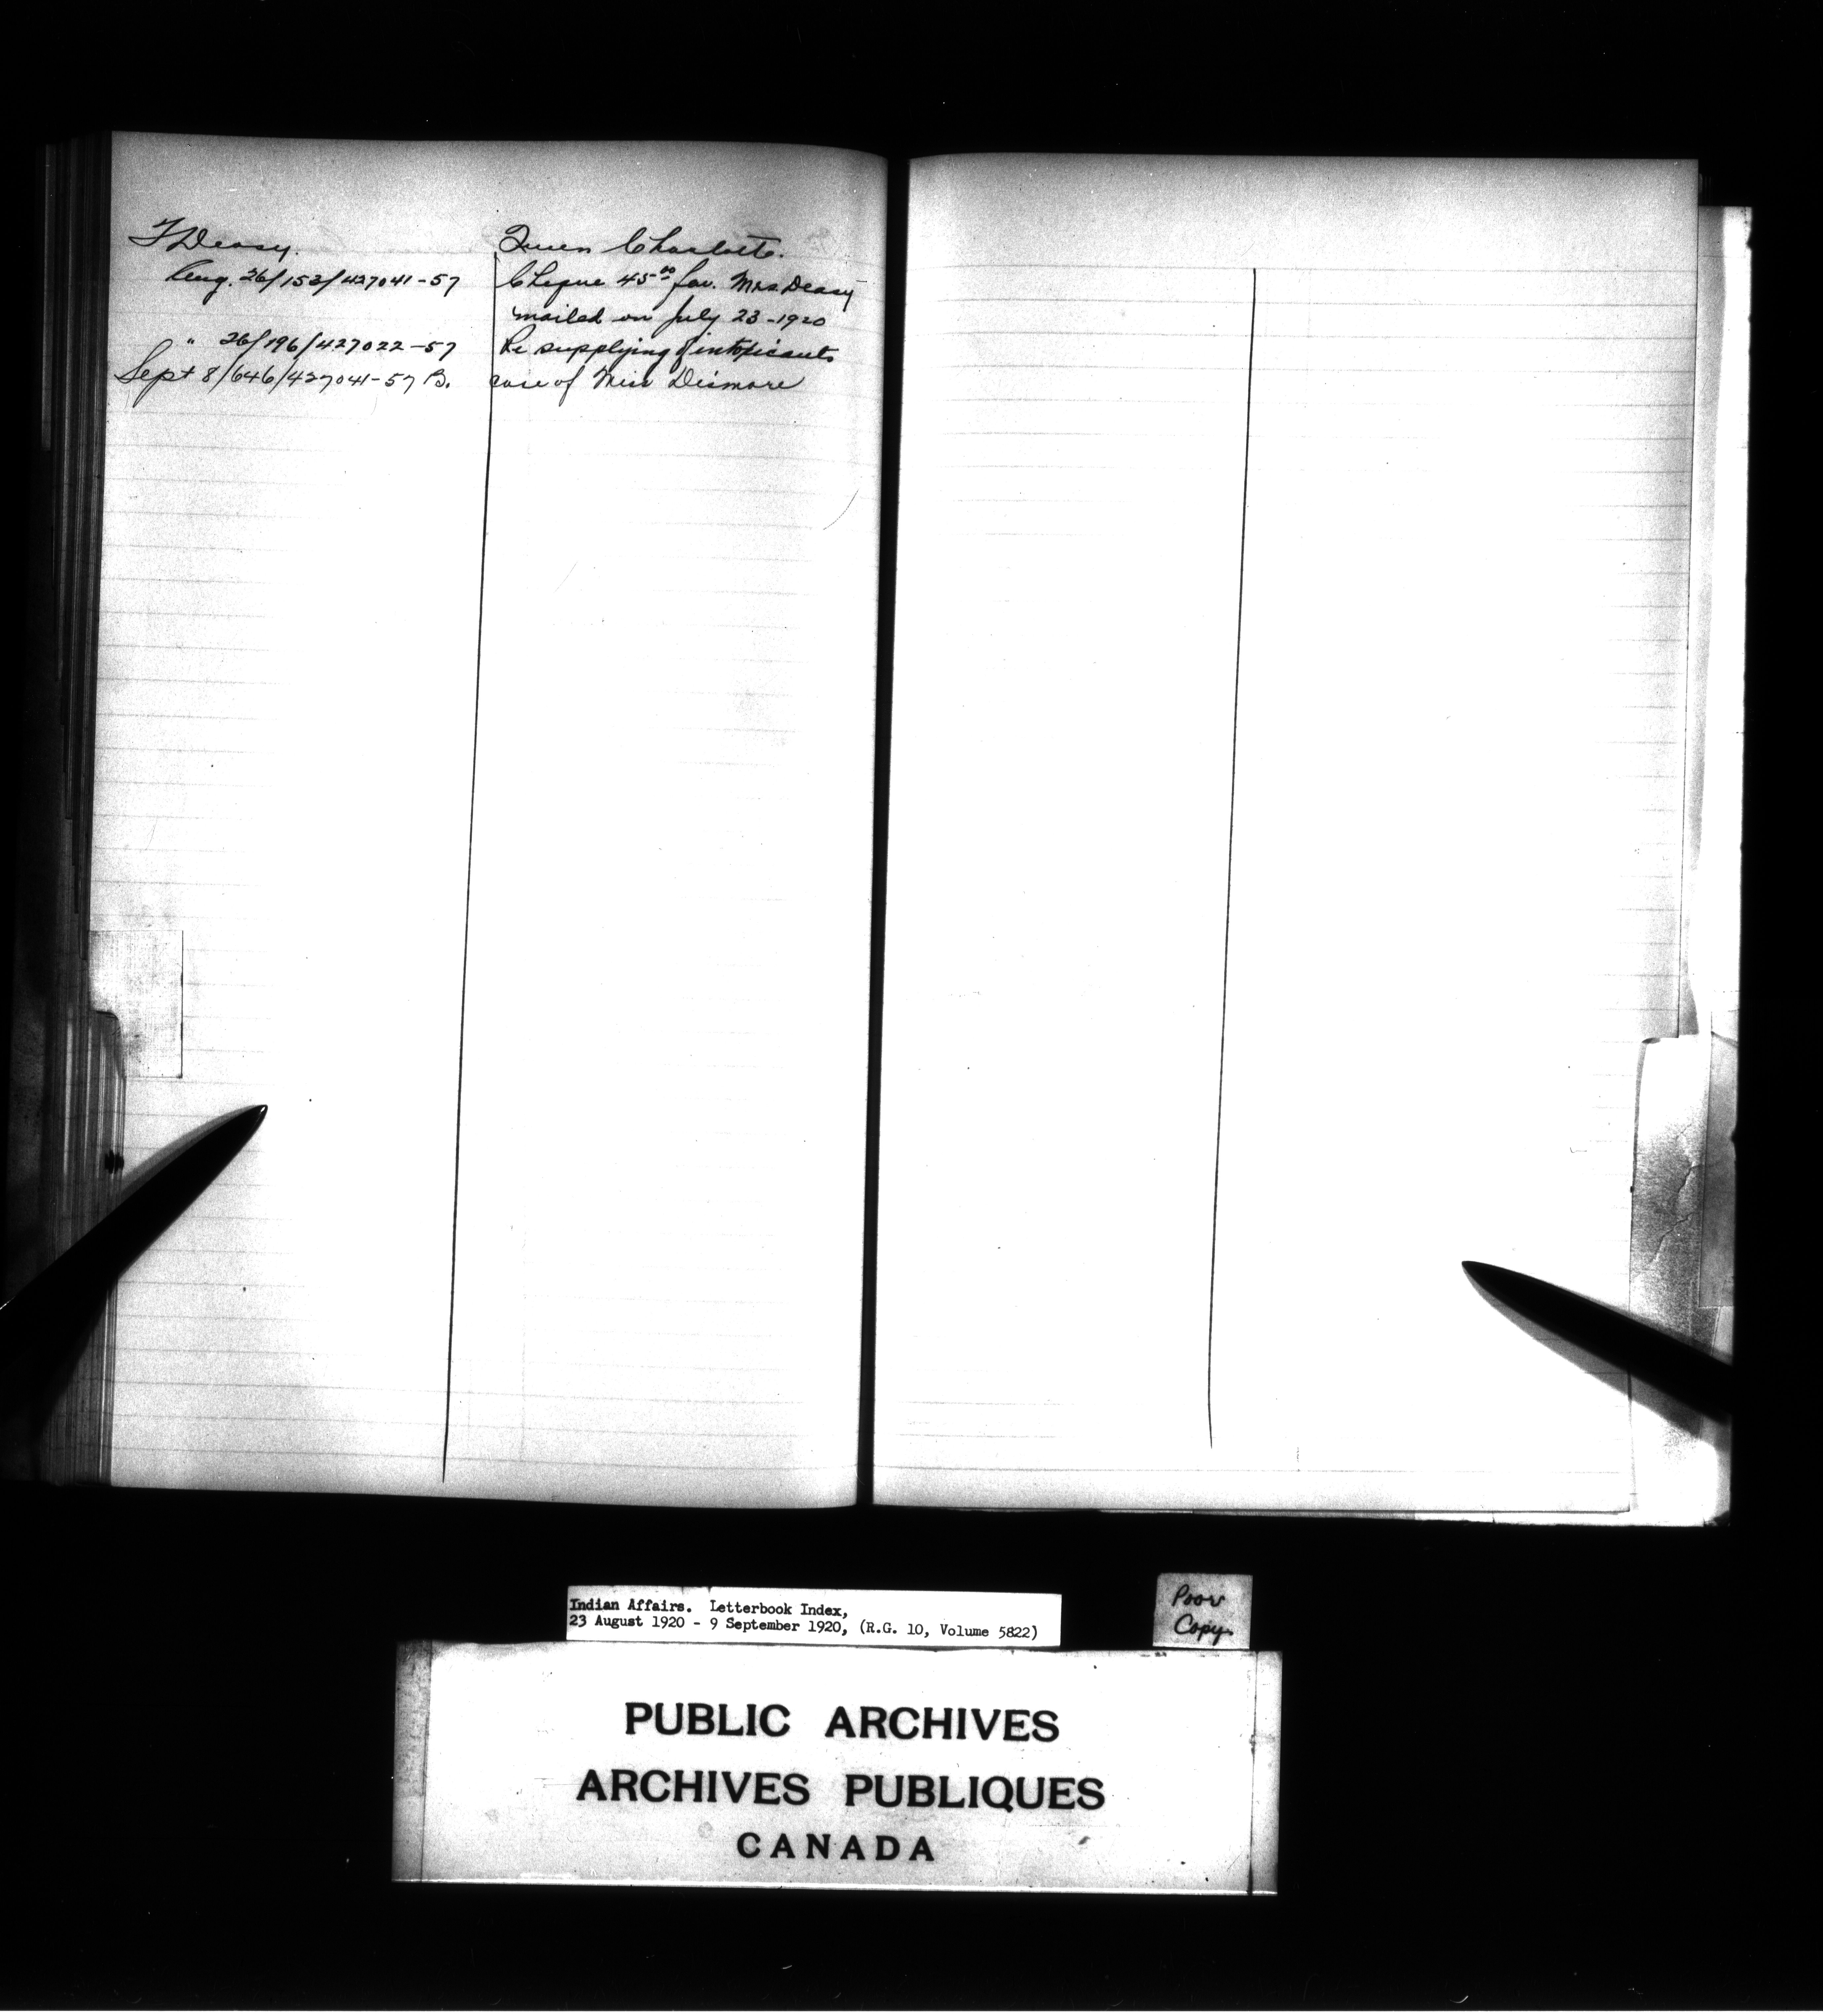 T Deasy.
Queen Charlotte.
Aug. 26/153/427041-57
Cheque 45.00 fav. Mrs. Deasy
mailed on July 23-1920
" 26/196/427022-57
Re supplying of intoxicants
Sept 8/646/427041-57 B.
case of Miss Dismore
Indian Affairs. Letterbook Index,
23 August 1920 - 9 September 1920, (R.G. 10, Volume 5822)
Poor
Copy.
PUBLIC ARCHIVES
ARCHIVES PUBLIQUES
CANADA